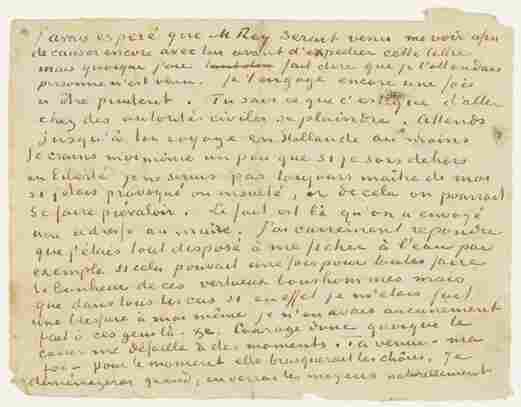 J'avais espéré que M. Rey serait venu me voir afin
de causer encore avec lui avant d'expedier cette lettre
mais quoique j'aie fait dire que je l'attendais
personne n'est venu. Je t'engage encore une fois
a être prudent. Tu sais ce que c'est que d'aller
chez des autorités civiles se plaindre. Attends
jusqu'à ton voyage en Hollande au moins
Je crains moi même un peu que si je suis dehors
en liberté je ne serais pas toujours maître de moi
si j'etais provoqué ou insulté, et de cela on pourrait
se faire prevaloir. Le fait est là qu'on a envoyé
une adresse au maire. J'ai carrement repondu
que j'étais tout disposé à me ficher à l'eau par
exemple si cela pouvait une fois pour toutes faire
le bonheur de ces vertueux bonshommes mais
que dans tous les cas si en effet je m'etais fait
une blessure à moi même je n'en avais aucunement
fait à ces gens là. &c. Courage donc quoique le
coeur me defaille à des moments. ta venue - ma
foi - pour le moment elle brusquerait les choses. Je
déménagerai quand j'en verrai les moyens naturellement